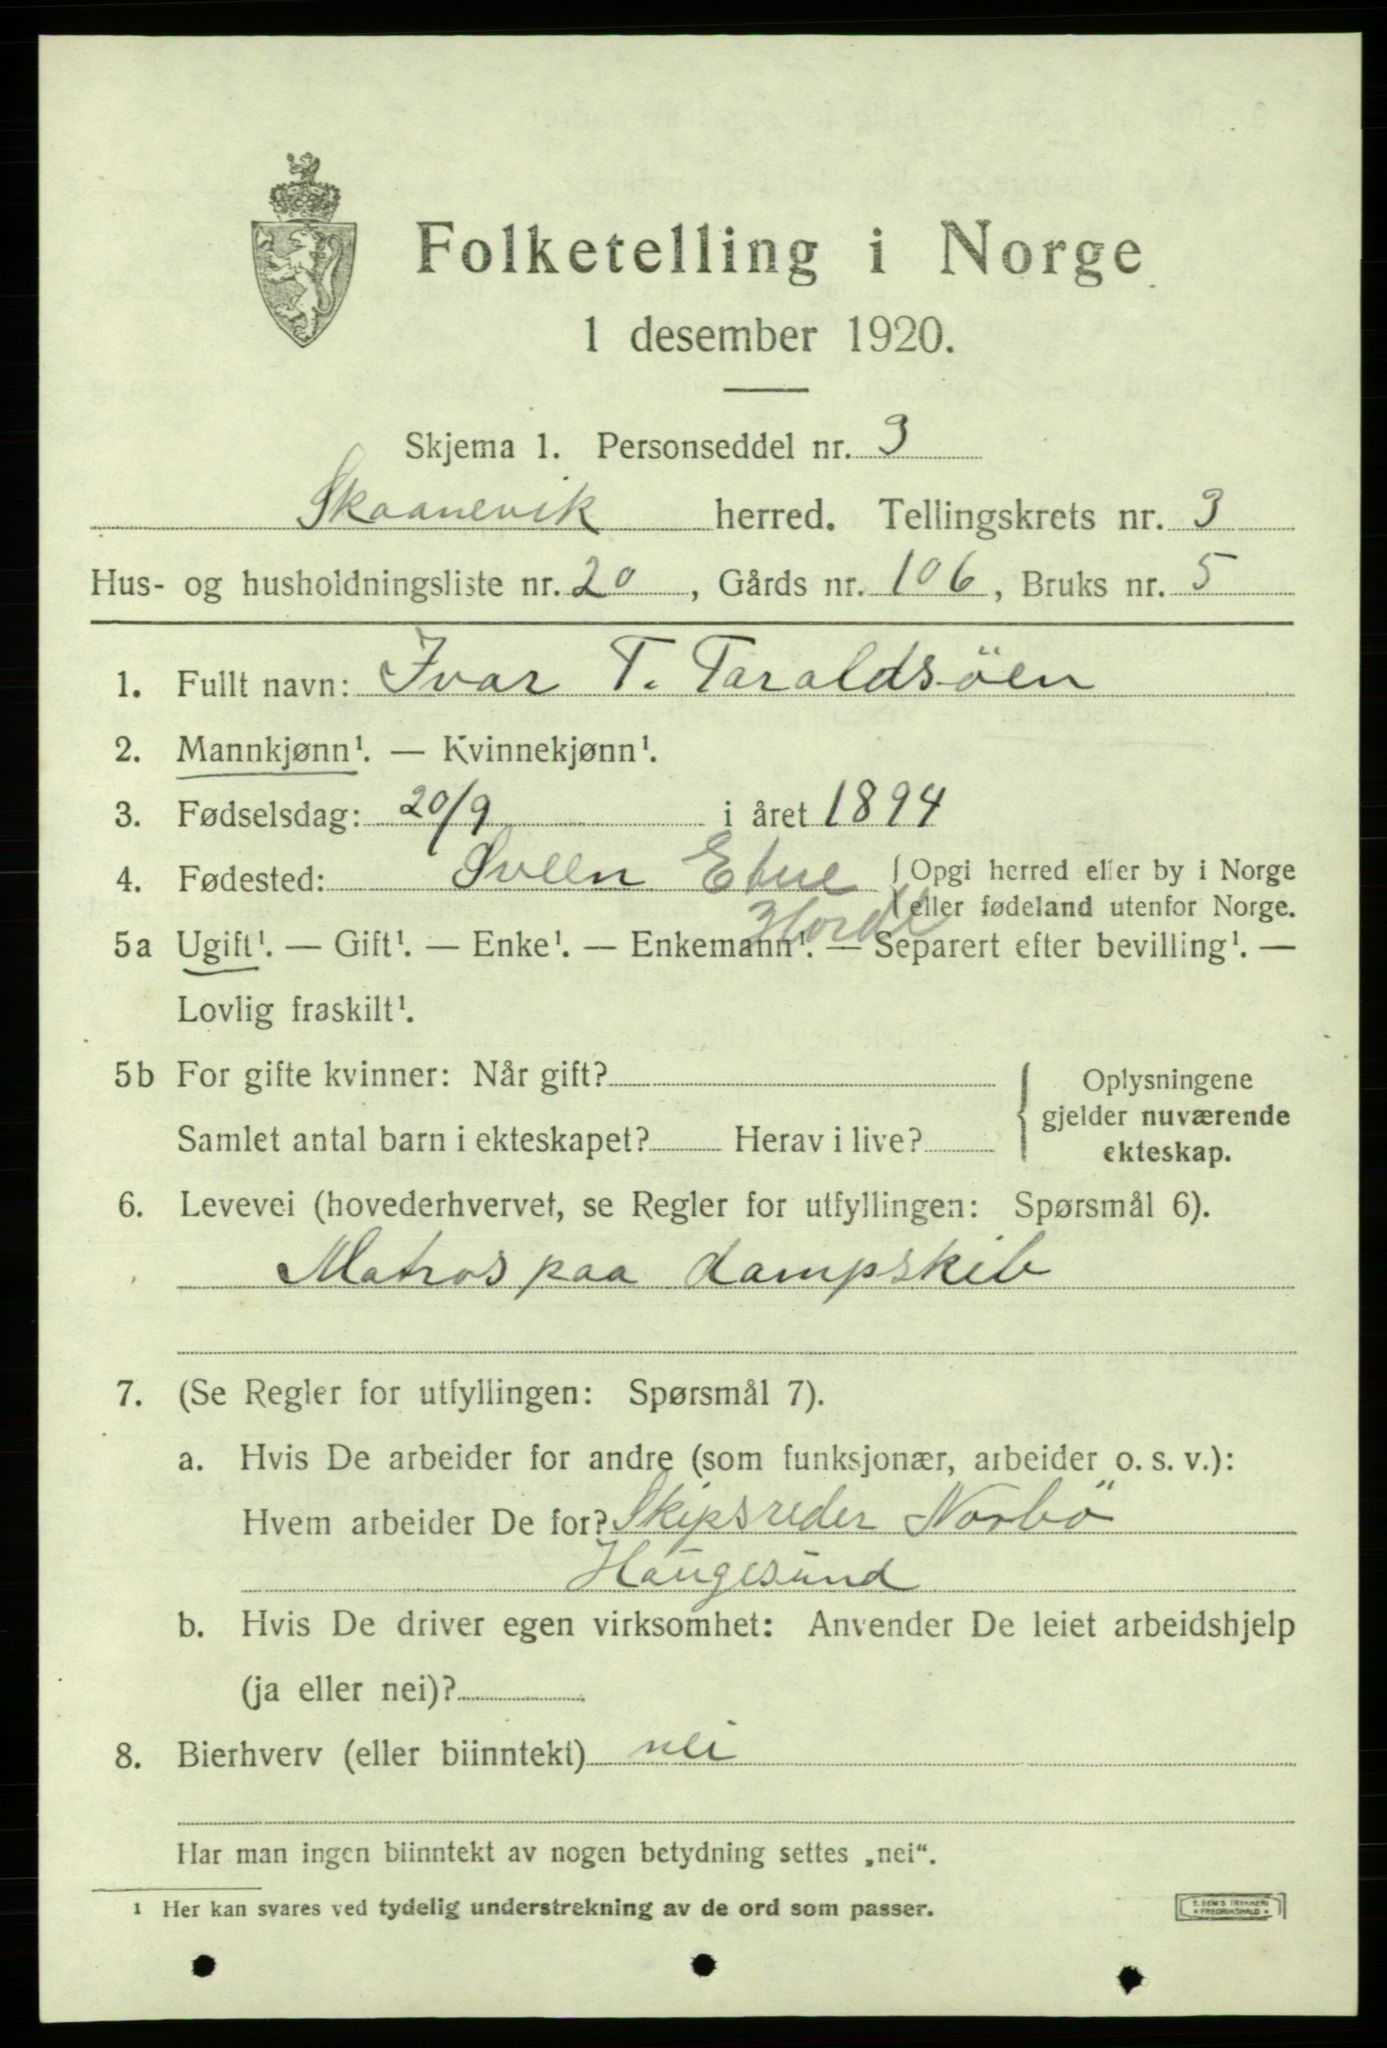 Folketelling i Norge
1 desember 1920.
Skjema 1. Personseddel nr. 3
Skaanevik herred. Tellingskrets nr. 3
Hus- og husholdningsliste nr. 20, Gårds nr. 106, Bruks nr. 5
1. Fullt navn: Ivar T. Taraldsöen
2. Mannkjønn¹. — Kvinnekjønn¹.
3. Fødselsdag: 20/9 i året 1894
4. Fødested: Sveen Etne { Opgi herred eller by i Norge
Horda eller fødeland utenfor Norge.
5a Ugift¹. — Gift¹. — Enke¹. — Enkemann¹. — Separert efter bevilling¹. —
Lovlig fraskilt¹.
5b For gifte kvinner: Når gift? Oplysningene
gjelder nuværende
Samlet antal barn i ekteskapet? Herav i live? ekteskap.
6. Levevei (hovederhvervet, se Regler for utfyllingen: Spørsmål 6).
Matros paa dampskib
7. (Se Regler for utfyllingen: Spørsmål 7).
a. Hvis De arbeider for andre (som funksjonær, arbeider o. s. v.):
Hvem arbeider De for? Skipsreder Norbö
Haugesund
b. Hvis De driver egen virksomhet: Anvender De leiet arbeidshjelp
(ja eller nei)?
8. Bierhverv (eller biinntekt) nei
Har man ingen biinntekt av nogen betydning settes „nei“.
¹ Her kan svares ved tydelig understrekning av de ord som passer.
E. SEMS TRYKKERI
FREDRIKSHALD